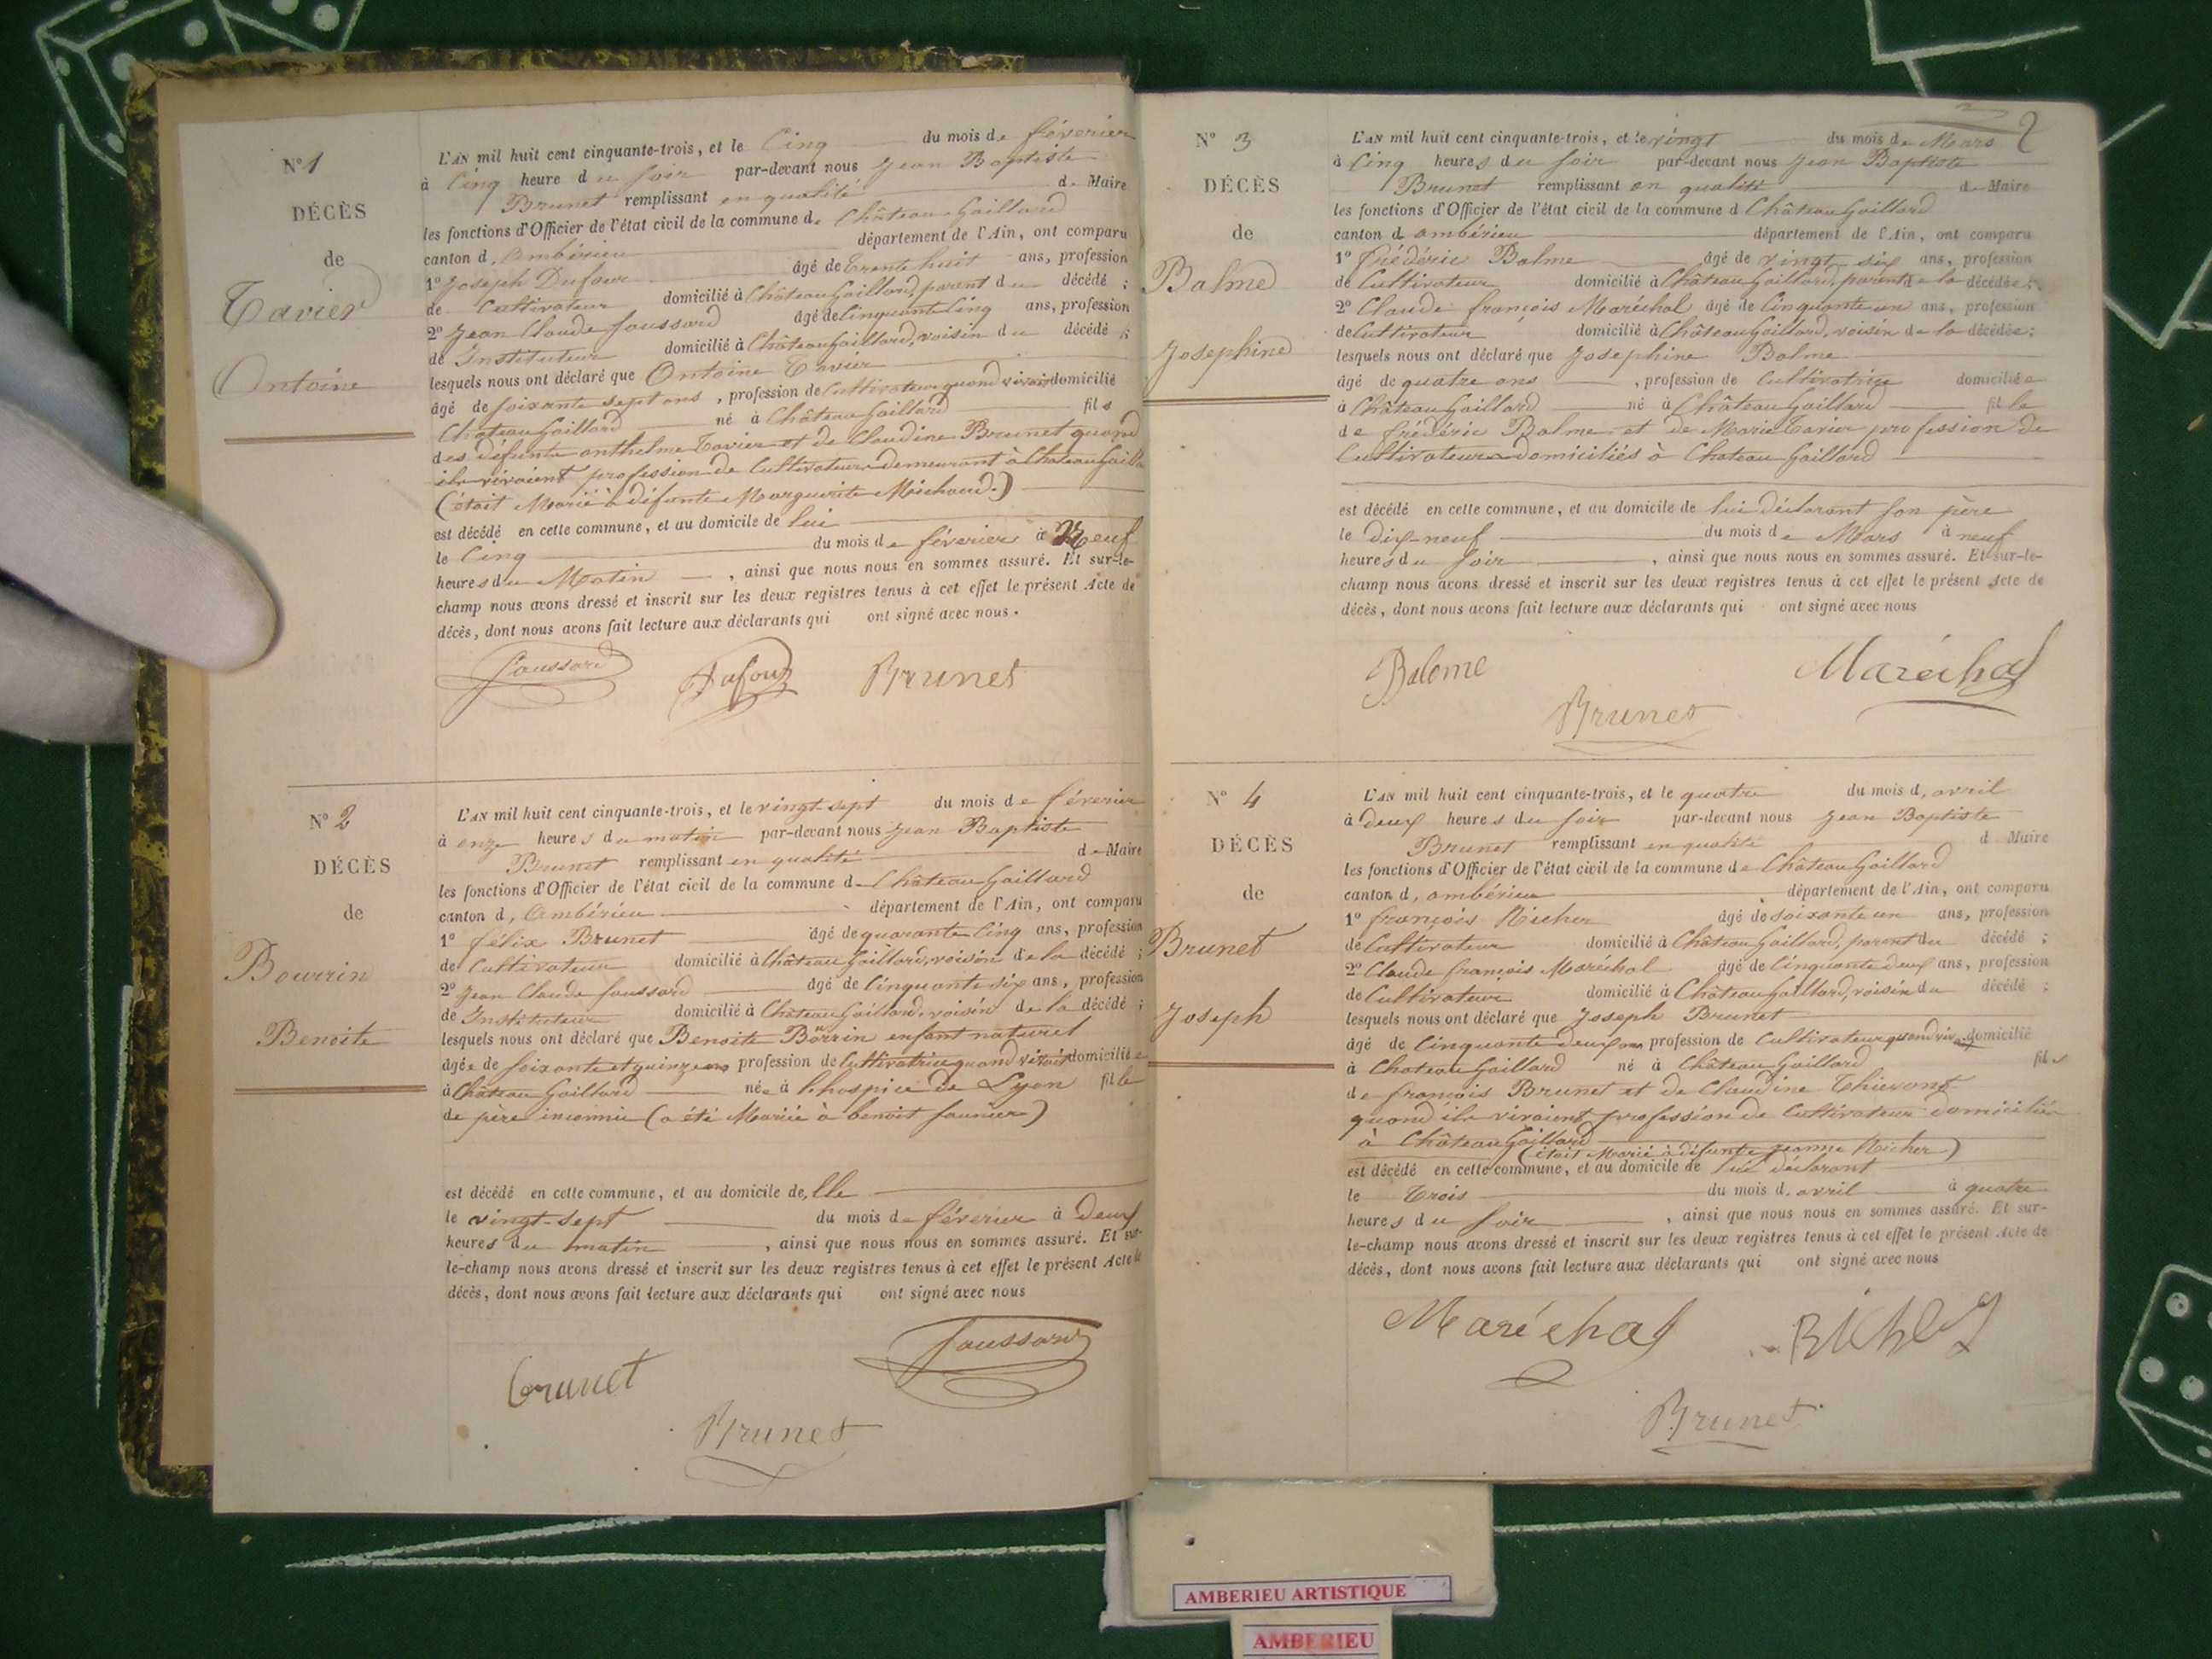 N° 1
DÉCÈS
de
Tavier
Antoine
L'AN mil huit cent cinquante-trois, et le Cinq du mois de féverier
à Cinq heure du soir par-devant nous Jean Baptiste
Brunet remplissant en qualité de Maire
les fonctions d'Officier de l'état civil de la commune de Château Gaillard
canton d, Ambérieu département de l'Ain, ont comparu
1° Joseph Dufour âgé de trente huit ans, profession
de Cultivateur domicilié à Château Gaillard, parent du décédé ;
2° Jean Claude Joussard âgé de Cinquante Cinq ans, profession
de Instituteur domicilié à Château Gaillard, voisin du décédé ;
lesquels nous ont déclaré que Antoine Tavier
âgé de soixante sept ans , profession de Cultivateur quand vivait domicilié
Château Gaillard né à Château Gaillard fils
des défunts anthelme Tavier et de Claudine Brunet quand
ils vivaient profession de Cultivateurs demeurant à Chateau Gailla
(était Marié à défunte Marguerite Michaud.)
est décédé en cette commune, et au domicile de lui
le Cinq du mois de féverier à Neuf
heures du Matin , ainsi que nous nous en sommes assuré. Et sur-le-
champ nous avons dressé et inscrit sur les deux registres tenus à cet effet le présent Acte de
décès, dont nous avons fait lecture aux déclarants qui ont signé avec nous.
Joussard Dufour Brunet
N° 2
DÉCÈS
de
Bourrin
Benoite
L'AN mil huit cent cinquante-trois, et le vingt-sept du mois de féverier
à onze heures du matin par-devant nous Jean Baptiste
Brunet remplissant en qualité de Maire
les fonctions d'Officier de l'état civil de la commune de Château Gaillard
canton d, Ambérieu département de l'Ain, ont comparu
1° félix Brunet âgé de quarante Cinq ans, profession
de Cultivateur domicilié à Château Gaillard, voisin de la décédé ;
2° Jean Claude Joussard âgé de Cinquante six ans, profession
de Instituteur domicilié à Château Gaillard, voisin de la décédé ;
lesquels nous ont déclaré que Benoite Bourrin enfant naturel
âgée de soixante et quinze ans profession de Cultivatrice quand vivait domiciliée
à Château Gaillard née à l'hospice de Lyon fille
de père inconnu (a été Mariée a benoit saunier)
est décédé en cette commune, et au domicile de, lle
le vingt-sept du mois de féverier à Deux
heures du matin , ainsi que nous nous en sommes assuré. Et sur-
le-champ nous avons dressé et inscrit sur les deux registres tenus à cet effet le présent Acte de
décès, dont nous avons fait lecture aux déclarants qui ont signé avec nous
Joussard
brunet
Brunet
2
N° 3
DÉCÈS
de
Balme
Josephine
L'AN mil huit cent cinquante-trois, et le vingt du mois de Mars
à Cinq heures du soir par-devant nous Jean Baptiste
Brunet remplissant en qualité de Maire
les fonctions d'Officier de l'état civil de la commune d Château Gaillard
canton d ambérieu département de l'Ain, ont comparu
1° frédéric Balme âgé de vingt six ans, profession
de Cultivateur domicilié à Château Gaillard, parent de la décédée ;
2° Claude françois Maréchal âgé de Cinquante un ans, profession
de Cultivateur domicilié à Château Gaillard, voisin de la décédée ;
lesquels nous ont déclaré que Josephine Balme
âgé de quatre ans , profession de Cultivatrice domiciliée
à Château Gaillard né à Château Gaillard fille
de frédéric Balme et de Marie Tavier profession de
Cultivateurs domiciliés à Chateau Gaillard
est décédé en cette commune, et au domicile de lui déclarant son père
le dix-neuf du mois de Mars à neuf
heures du soir , ainsi que nous nous en sommes assuré. Et sur-le-
champ nous avons dressé et inscrit sur les deux registres tenus à cet effet le présent Acte de
décès, dont nous avons fait lecture aux déclarants qui ont signé avec nous
Balme Maréchal
Brunet
N° 4
DÉCÈS
de
Brunet
Joseph
L'AN mil huit cent cinquante-trois, et le quatre du mois d, avril
à deux heures du soir par-devant nous Jean Baptiste
Brunet remplissant en qualité d Maire
les fonctions d'Officier de l'état civil de la commune de Château Gaillard
canton d, ambérieu département de l'Ain, ont comparu
1° françois Richer âgé de soixante un ans, profession
de Cultivateur domicilié à Château Gaillard, parent du décédé ;
2° Claude françois Maréchal âgé de Cinquante deux ans, profession
de Cultivateur domicilié à Château Gaillard, voisin du décédé ;
lesquels nous ont déclaré que Joseph Brunet
âgé de Cinquante deux ans profession de Cultivateur quand viv domicilié
à Chateau Gaillard né à Château Gaillard fils
de françois Brunet et de Claudine Thievont
quand ils vivaient profession de Cultivateur domiciliés
à Château Gaillard
(était Marié à défunte Jeanne Richer)
est décédé en cette commune, et au domicile de lui déclarant
le Trois du mois d, avril à quatre
heures du soir , ainsi que nous nous en sommes assuré. Et sur-
le-champ nous avons dressé et inscrit sur les deux registres tenus à cet effet le présent Acte de
décès, dont nous avons fait lecture aux déclarants qui ont signé avec nous
Maréchal Richer
Brunet
AMBERIEU ARTISTIQUE
AMBERIEU